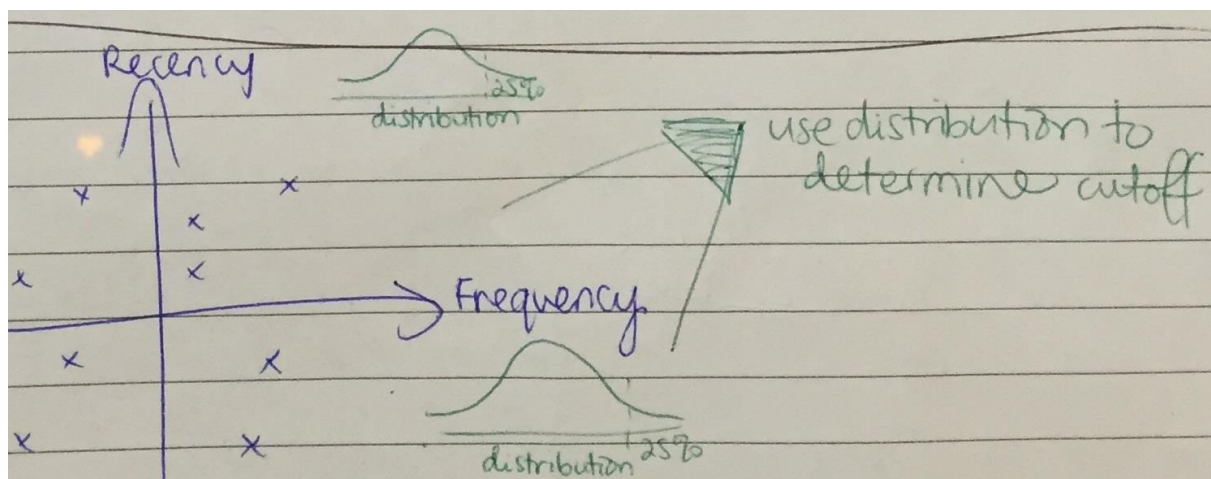 Recency
25%
distribution
use distribution to
determine cutoff
Frequency
25%
distribution